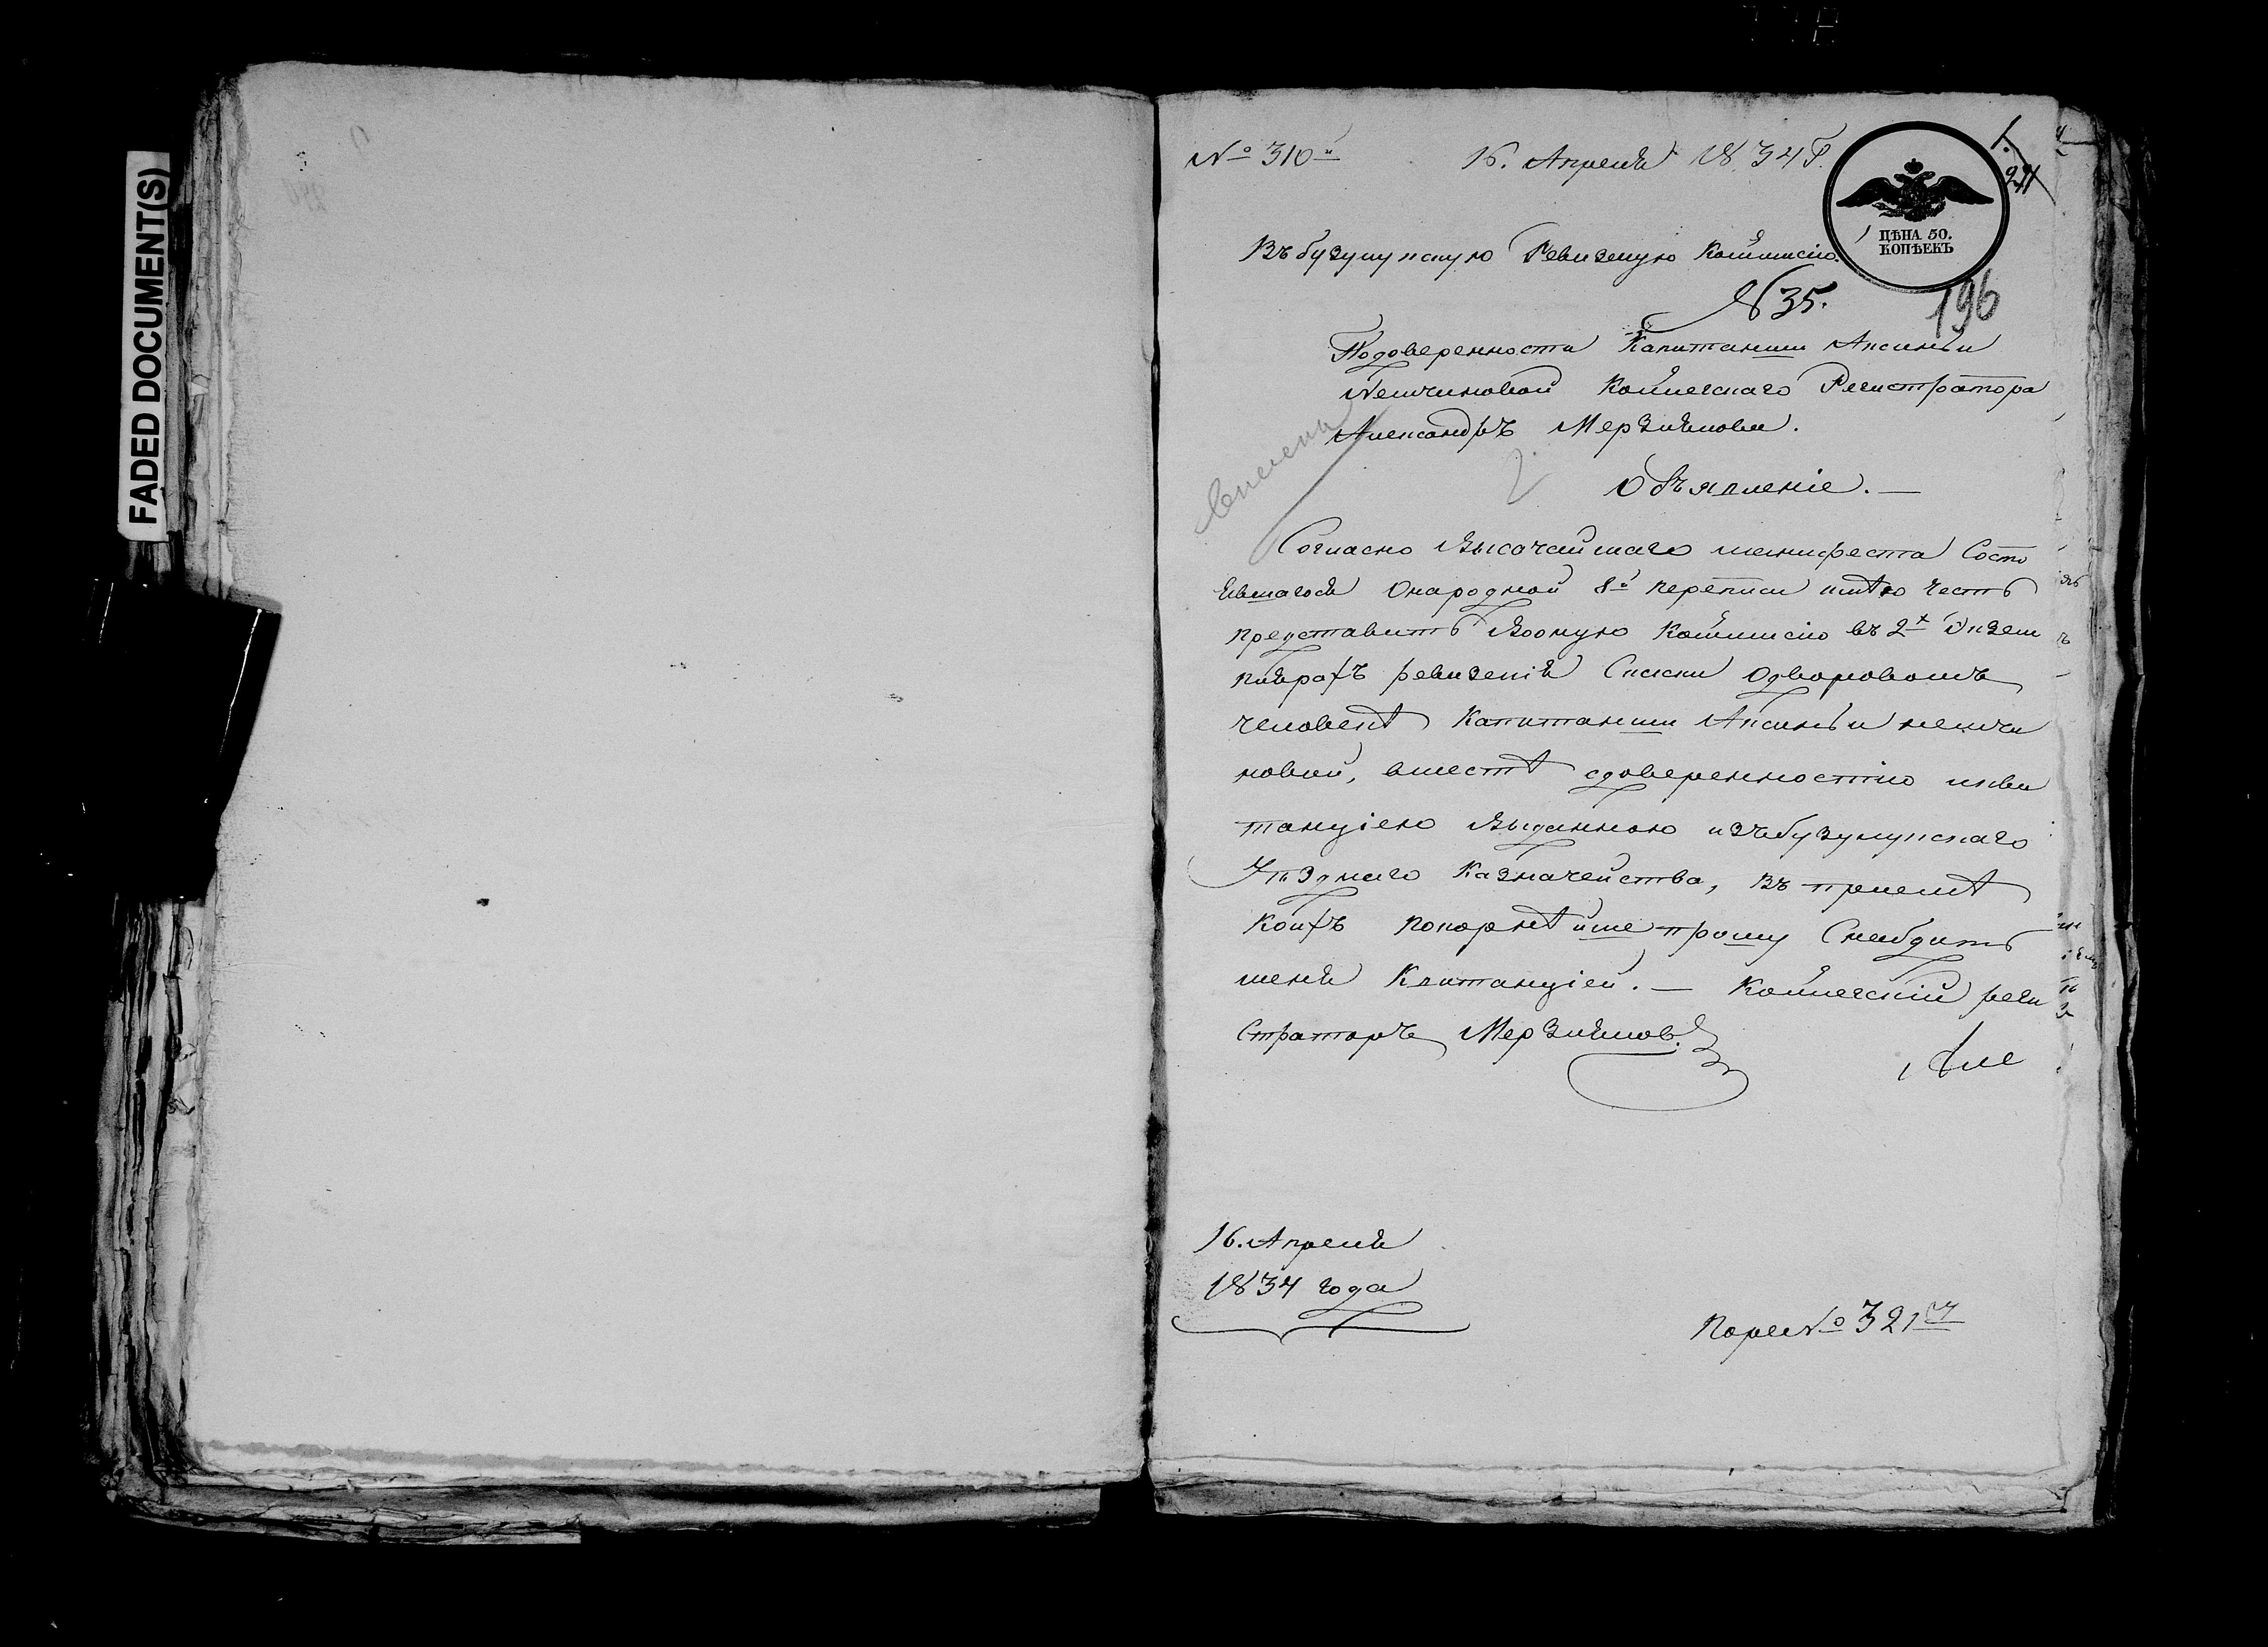 FADED DOCUMENT(S)
№ 310й 16. Апреля 1834 Г.
1.
ЦѢНА 50.
КОПѢЕКЪ
Въ бузулускую Ревизскую Коммисію.
№ 35.
196
По доверенности Капитанши Аксиньи
Нешчиновой Коллегскаго Регистратора
Александръ Мерзлякова.
Объявленіе.—
Согласно Высочайшаго манифеста Состо
явшагося О народной 8й переписи имѣю Честь
представить Во оную Коммисію въ 2х Экзем
плярахъ ревизскія Сказки О дворовомъ
человекѣ Капитанши Аксиньи
новой, вместѣ с доверенностію и кви
танціею Выданною изъ бузулускаго
Уѣзднаго Казначейства, Въ приемѣ
коихъ покорнѣйше прошу Снабдить
меня Квитанціей.— Коллегскій реги
Страторъ Мерзляков.
16. Апреля
1834 года
По рее № 321й